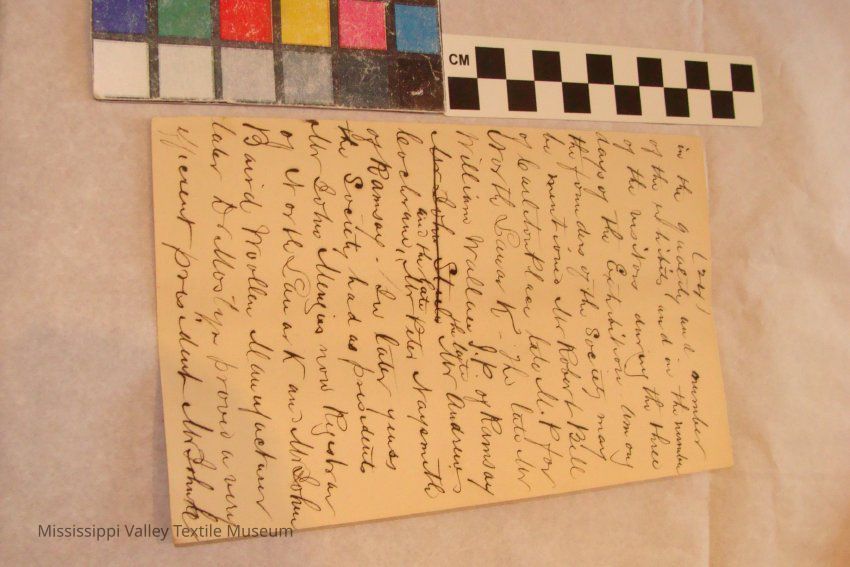 (24)
in the quality and number
of the exhibits and in the number
of the visitors during the three
days of the Exhibition. Among
the founders of the Society may
be mentioned Mr Robert Bell
of Carleton Place late M.P. for
North Lanark - The late Mr
William Wallace J.P. of Ramsay
the late Mr Andrew
Mr John Steele
Cochrane, Mr Peter Naysmith
and the late
of Ramsay - In later years
the Society had as presidents
Mr John Menzies now Registrar
of North Lanark and Mr John
Baird Woollen Manufacturer
later Dr Mostyn proved a very
efficient president Mr John
CM
Mississippi Valley Textile Museum